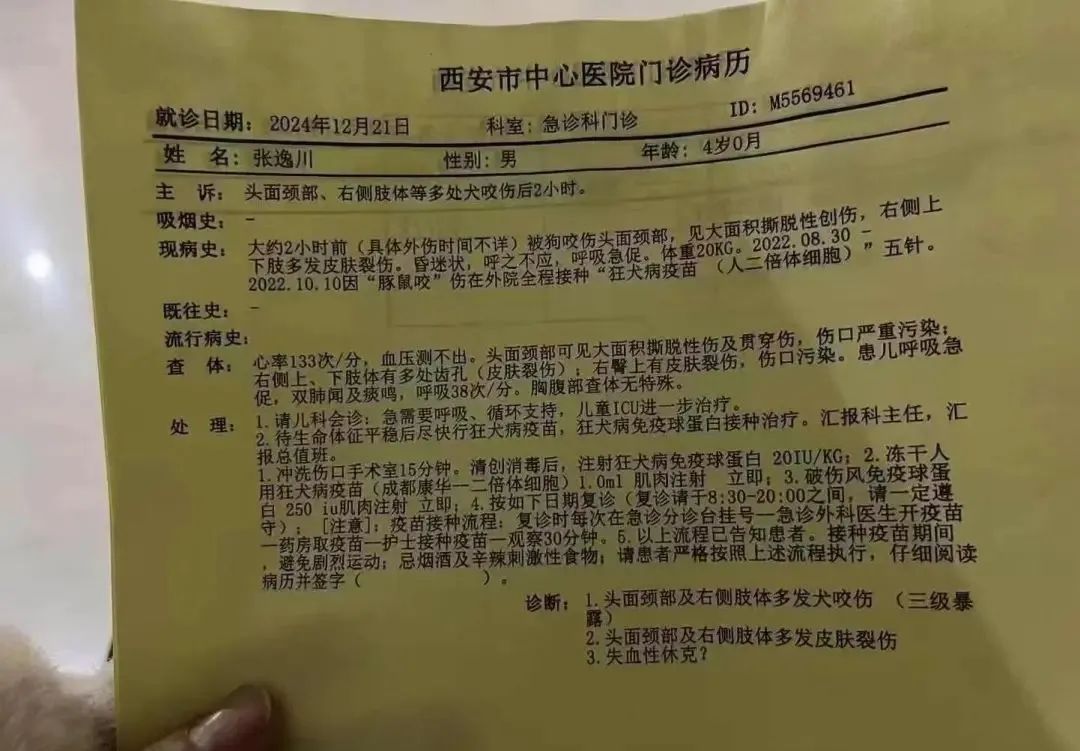 西安市中心医院门诊病历
就诊日期: 2024年12月21日 科室: 急诊科门诊 ID: M5569461
姓 名: 张逸川 性别: 男 年龄: 4岁0月
主 诉: 头面颈部、右侧肢体等多处犬咬伤后2小时。
吸烟史: -
现病史: 大约2小时前（具体外伤时间不详）被狗咬伤头面颈部, 见大面积撕脱性创伤, 右侧上
下肢多发皮肤裂伤。昏迷状, 呼之不应, 呼吸急促。体重20KG。2022.08.30 -
2022.10.10因“豚鼠咬”伤在外院全程接种“狂犬病疫苗 （人二倍体细胞）”五针。
既往史: -
流行病史:
查 体: 心率133次/分, 血压测不出。头面颈部可见大面积撕脱性伤及贯穿伤, 伤口严重污染;
右侧上、下肢体有多处齿孔（皮肤裂伤）; 右臀上有皮肤裂伤, 伤口污染。患儿呼吸急
促, 双肺闻及痰鸣, 呼吸38次/分。胸腹部查体无特殊。
处 理: 1.请儿科会诊: 急需要呼吸、循环支持, 儿童ICU进一步治疗。
2.待生命体征平稳后尽快行狂犬病疫苗, 狂犬病免疫球蛋白接种治疗。汇报科主任, 汇
报总值班。
1.冲洗伤口手术室15分钟。清创消毒后, 注射狂犬病免疫球蛋白 20IU/KG; 2.冻干人
用狂犬病疫苗（成都康华—二倍体细胞）1.0ml 肌肉注射 立即; 3.破伤风免疫球蛋
白 250 iu肌肉注射 立即; 4.按如下日期复诊（复诊请于8:30-20:00之间, 请一定遵
守）; [注意]: 疫苗接种流程: 复诊时每次在急诊分诊台挂号—急诊外科医生开疫苗
—药房取疫苗—护士接种疫苗—观察30分钟。5.以上流程已告知患者。接种疫苗期间
, 避免剧烈运动; 忌烟酒及辛辣刺激性食物; 请患者严格按照上述流程执行, 仔细阅读
病历并签字（ ）。
诊断: 1.头面颈部及右侧肢体多发犬咬伤 （三级暴
露）
2.头面颈部及右侧肢体多发皮肤裂伤
3.失血性休克?